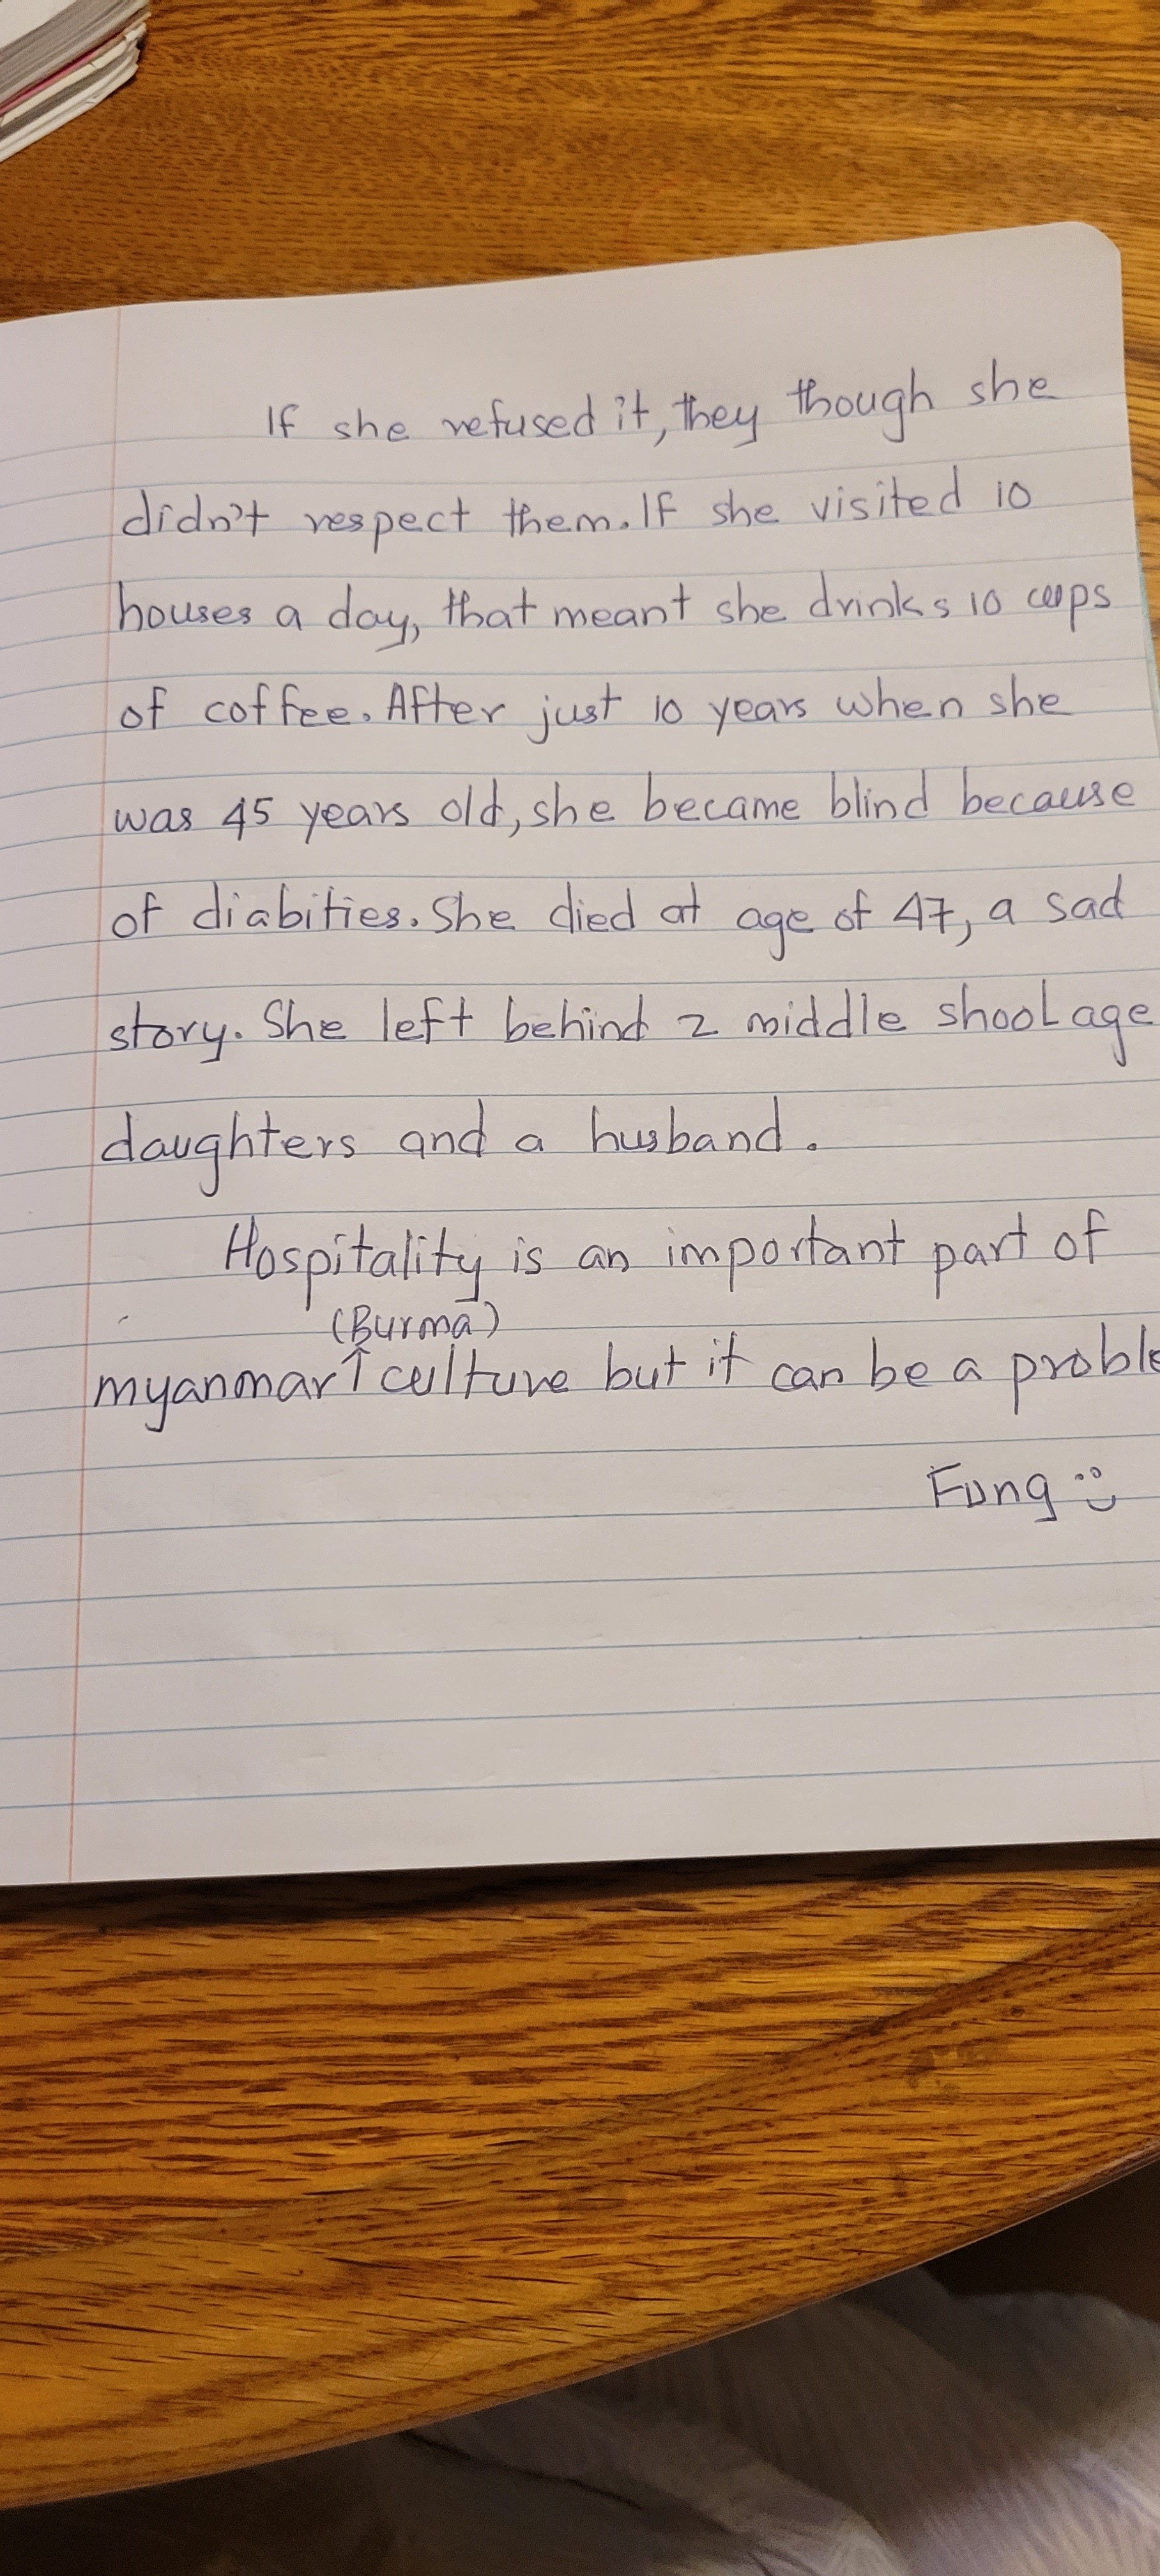 If she refused it, they though she
didn't respect them. If she visited 10
houses a day, that meant she drinks 10 cups
of coffee. After just 10 years when she
was 45 years old, she became blind because
of diabities. She died at age of 47, a sad
story. She left behind 2 middle shool age
daughters and a husband.
Hospitality is an important part of
(Burma)
myanmar ↑ culture but it can be a proble
Fung